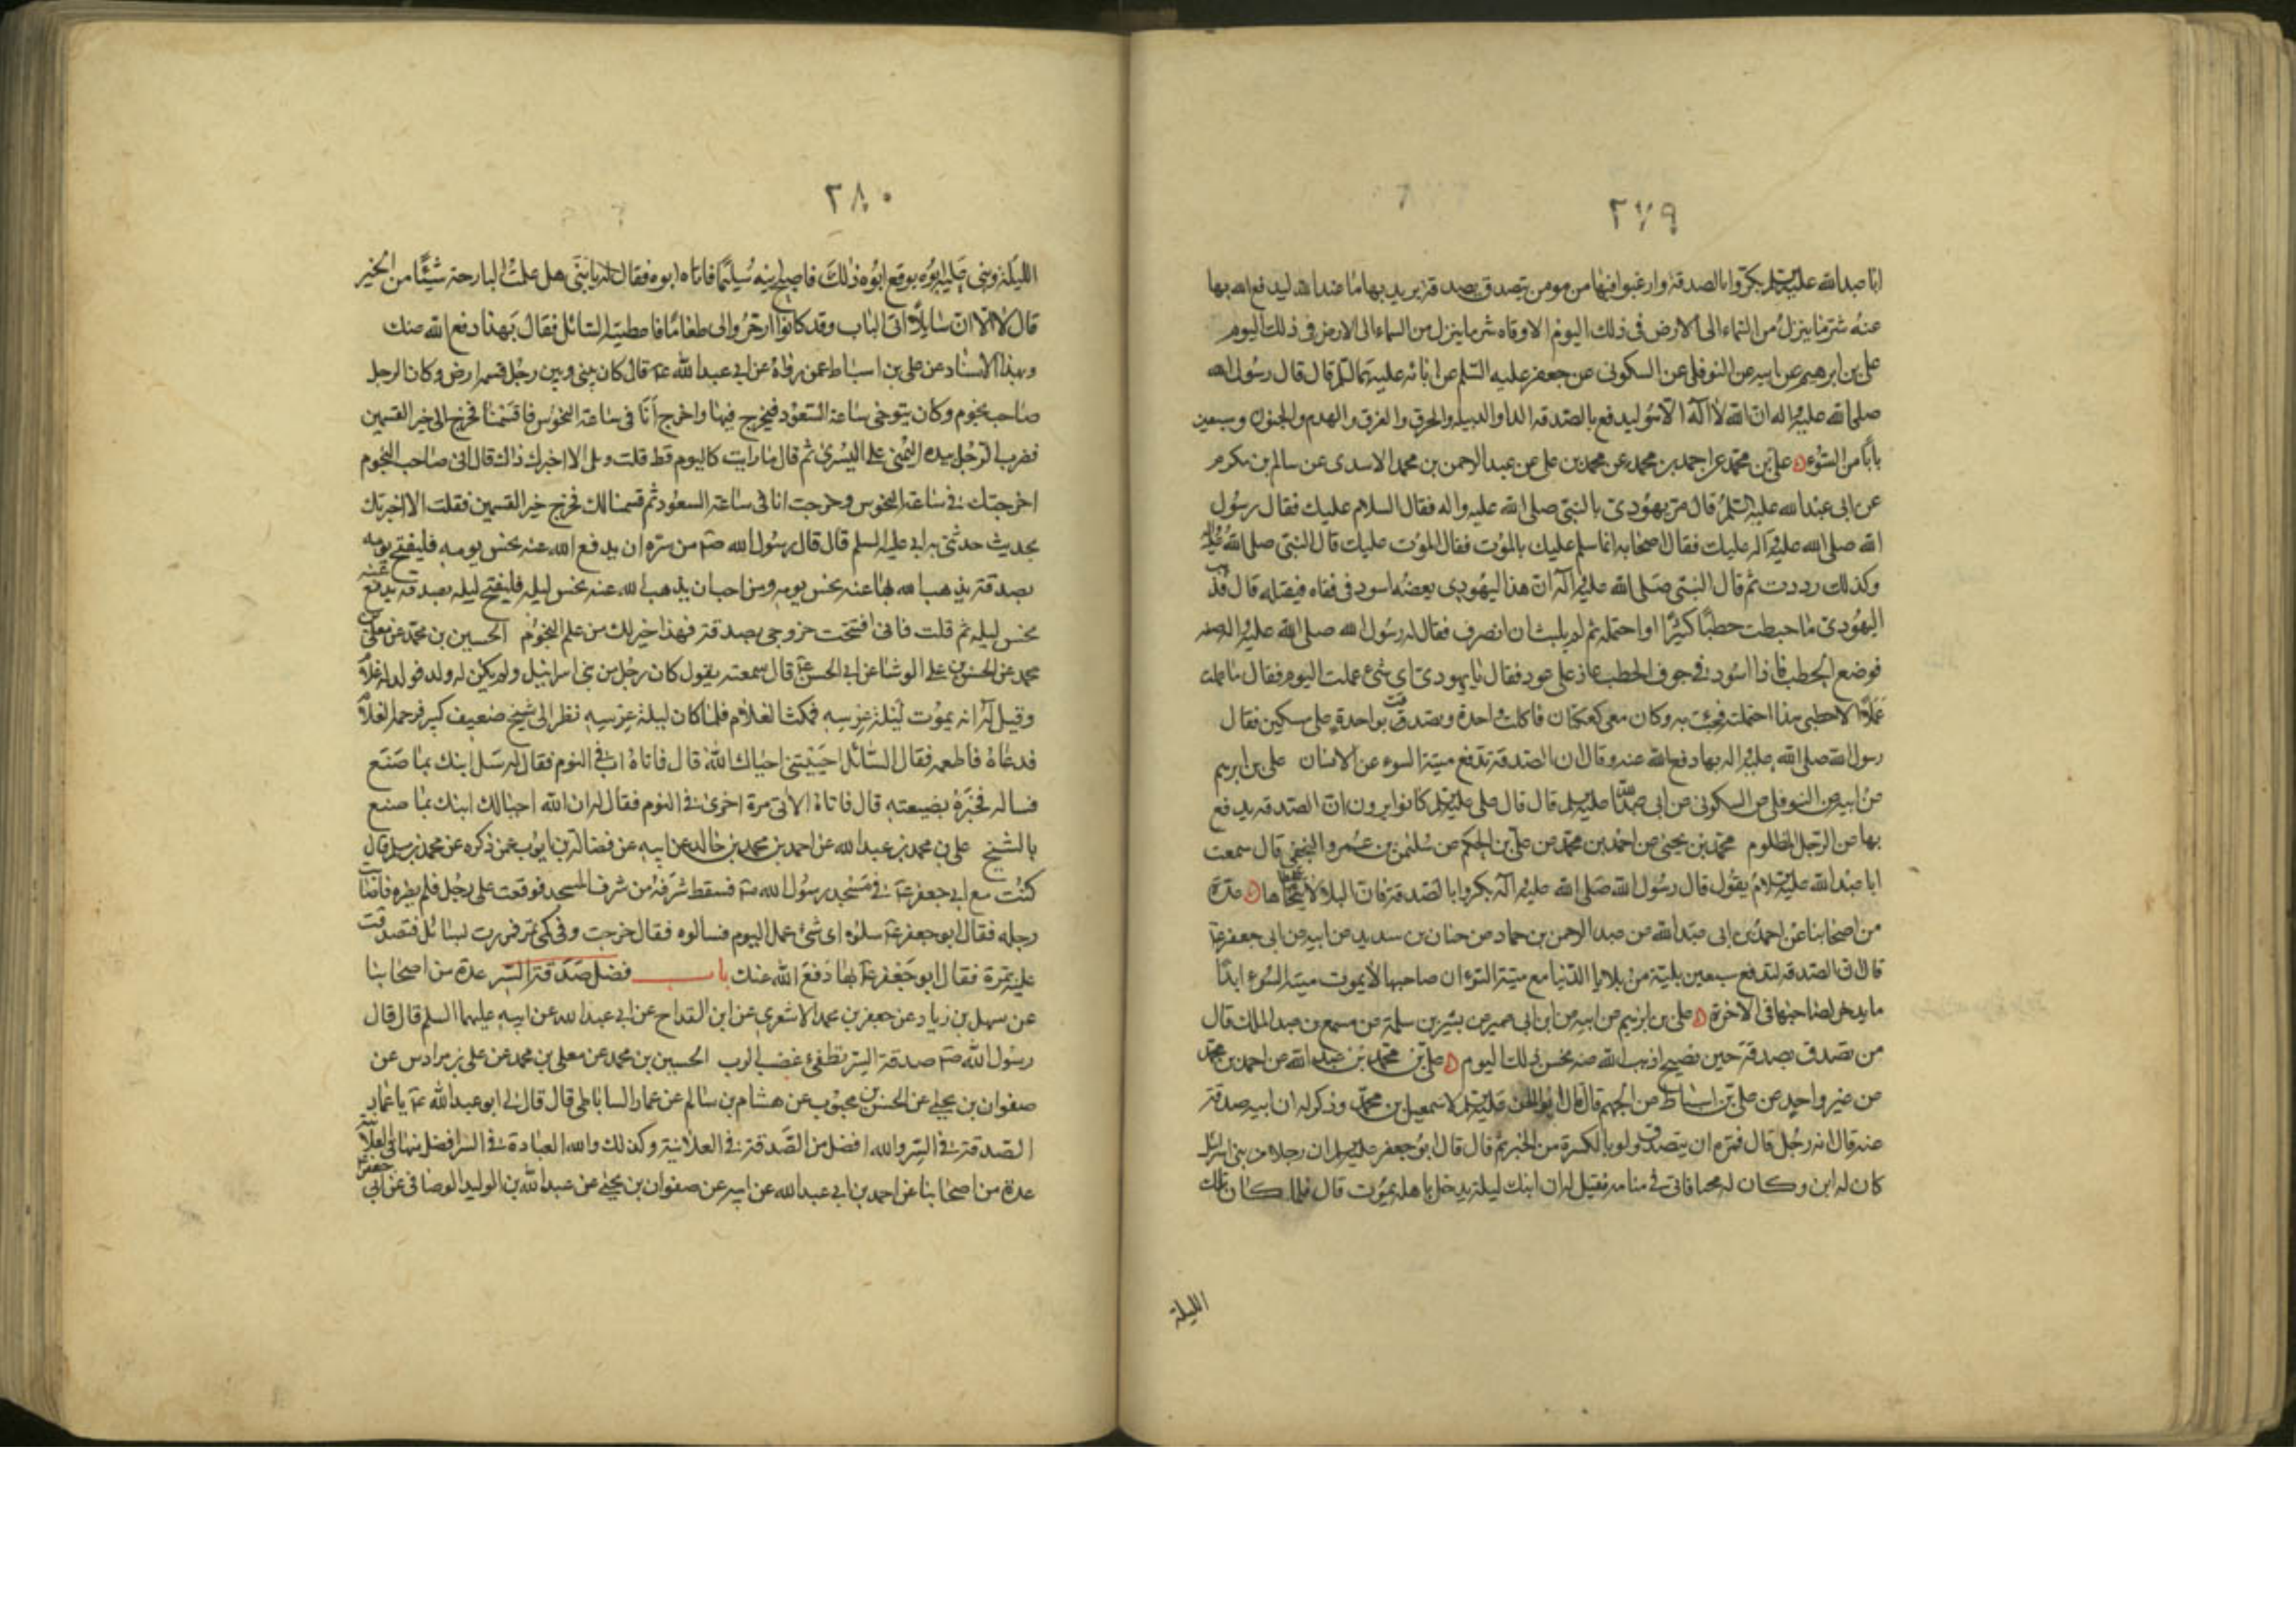 ٢٧٩
ابا عبدالله عليه السلم بكروا بالصدقة وارغبوا فيها من مومن يتصدق بصدقة يريد بها ما عند الله ليدفع الله بها
عنه شر ما ينزل من السماء الى الارض فى ذلك اليوم الا وقاه شر ما ينزل من السماء الى الارض فى ذلك اليوم
على بن ابرهيم عن ابيه عن النوفلى عن السكونى عن جعفر عليه السلم عن ابائه عليهم السلم قال قال رسول الله
صلى الله عليه واله ان الله لا اله الا هو ليدفع بالصدقه الدا والدبيله والحرق والغرق والهدم والجنون وسبعين
بابا من السوء على بن محمد عن احمد بن محمد عن محمد بن على عن عبدالرحمن بن محمد الاسدى عن سالم بن مكرم
عن ابى عبدالله عليه السلم قال مر يهودى بالنبى صلى الله عليه واله فقال السلام عليك فقال رسول
الله صلى الله عليه واله عليك فقال اصحابه انما سلم عليك بالموت فقال الموت عليك قال النبى صلى الله عليه واله
وكذلك رددت ثم قال النبى صلى الله عليه واله ان هذا اليهودى يعضه اسود فى قفاه فيقتله قال فذهب
اليهودى فاحتطب حطبا كثيرا فاحتمله ثم لم يلبث ان انصرف فقال له رسول الله صلى الله عليه واله ضعه
فوضع الحطب فاذا اسود فى جوف الحطب عاذ على عود فقال يا يهودى اى شىء عملت اليوم فقال ما عملت
عملا الا حطبى هذا احتملته فجئت به وكان معى كعكتان فاكلت واحدة وتصدقت بواحدة على مسكين فقال
رسول الله صلى الله عليه واله بها دفع الله عنه وقال ان الصدقة تدفع ميتة السوء عن الانسان على بن ابرهيم
عن ابيه عن النوفلى عن السكونى عن ابى عبدالله عليه السلم قال قال على عليه السلم كانوا يرون ان الصدقه يدفع
بها عن الرجل المظلوم محمد بن يحيى عن احمد بن محمد عن على بن الحكم عن سليمن بن عمرو النخعى قال سمعت
ابا عبدالله عليه السلام يقول قال رسول الله صلى الله عليه واله بكروا بالصدقة فان البلاء لا يتخطاها عدة
من اصحابنا عن احمد بن ابى عبدالله عن عبدالرحمن بن حماد عن حنان بن سدير عن ابيه عن ابى جعفر ع
قال ان الصدقه لتدفع سبعين بلية من بلايا الدنيا مع ميتة السوء ان صاحبها لا يموت ميتة السوء ابدا
ما يدخر لصاحبها فى الاخرة على بن ابرهيم عن ابيه عن ابن ابى عمير عن بشر بن سلمة عن مسمع بن عبدالملك قال
من تصدق بصدقة حين يصبح اذهب الله عنه نحس ذلك اليوم على بن محمد بن عبدالله عن احمد بن محمد
عن غير واحد عن على بن اسباط عن الجهم قال قال ابوالحسن عليه السلم لاسمعيل بن محمد وذكر له ان ابنه صدقة
عنه قال انه رجل قال فمره ان يتصدق ولو بالكسرة من الخبز ثم قال قال ابوجعفر عليه السلم ان رجلا من بنى اسرائيل
كان له ابن وكان له محبا فاتى فى منامه فقيل له ان ابنك ليلة يدخل باهله يموت قال فلما كان تلك
الليلة
٢٨٠
الليلة وبنى عليه ابوه توقع ابوه ذلك فاصبح ابنه سليما فاتاه ابوه فقال له يا بنى هل عملت البارحة شيئا من الخير
قال لا الا ان سايلا اتى الباب وقد كانوا ادخروا لى طعاما فاعطيته السائل فقال بهذا دفع الله عنك
وبهذا الاسناد عن على بن اسباط عمن رواه عن ابى عبدالله ع قال كان بينى وبين رجل قسمة ارض وكان الرجل
صاحب نجوم وكان يتوخى ساعة السعود فيخرج فيها واخرج انا فى ساعة النحوس فاقتسمنا فخرج لى خير القسمين
فضرب الرجل بيده اليمنى على اليسرى ثم قال ما رايت كاليوم قط قلت ويل الا اخبرك ذاك قال انى صاحب النجوم
اخرجتك فى ساعة النحوس وخرجت انا فى ساعة السعود ثم قسمنا لك فخرج خير القسمين فقلت الا اخبرتك
بحديث حدثنى به ابى عليه السلم قال قال رسول الله ص من سره ان يدفع الله عنه نحس يومه فليفتح يومه
بصدقة يذهب الله بها عنه نحس يومه ومن احب ان يذهب الله عنه نحس ليله فليفتح ليله بصدقة يدفع عنه
نحس ليله ثم قلت فانى افتتحت خروجى بصدقة فهذا خير لك من علم النجوم الحسين بن محمد عن معلى بن
محمد عن الحسن بن على الوشا عن ابى الحسن ع قال سمعته يقول كان رجل من بنى اسرائيل ولم يكن له ولد فولد له غلام
وقيل له انه يموت ليلة عرسه فمكث الغلام فلما كان ليلة عرسه نظر الى شيخ ضعيف كبير فرحمه الغلام
فدعاه فاطعمه فقال السائل احييتنى احياك الله قال فاتاه ات فى النوم فقال له سل ابنك بما صنع
فساله فخبره بضيعته قال فاتاه الاتى مرة اخرى فى النوم فقال له ان الله احيا لك ابنك بما صنع
بالشيخ على بن محمد بن عبدالله عن احمد بن محمد بن خالد عن ابيه عن فضالة بن ايوب عمن ذكره عن محمد بن مسلم قال
كنت مع ابى جعفر ع فى مسجد رسول الله ص فسقط شرفة من شرف المسجد فوقعت على رجل فلم يضره فاصابت
رجله فقال ابوجعفر ع سلوه اى شىء عمل اليوم فسالوه فقال خرجت وفى كمى تمر فمررت بسائل فتصدقت
عليه بتمرة فقال ابوجعفر ع بها دفع الله عنك باب فضل صدقة السر عدة من اصحابنا
عن سهل بن زياد عن جعفر بن محمد الاشعرى عن ابن القداح عن ابى عبدالله عن ابيه عليهما السلم قال قال
رسول الله ص صدقة السر تطفئ غضب الرب الحسين بن محمد عن معلى بن محمد عن على بن مرداس عن
صفوان بن يحيى عن الحسن بن محبوب عن هشام بن سالم عن عمار الساباطى قال قال لى ابوعبدالله ع يا عمار
الصدقة فى السر والله افضل من الصدقة فى العلانية وكذلك والله العبادة فى السر افضل منها فى العلانية
عدة من اصحابنا عن احمد بن ابى عبدالله عن ابيه عن صفوان بن يحيى عن عبدالله بن الوليد الوصافى عن ابى جعفر ع